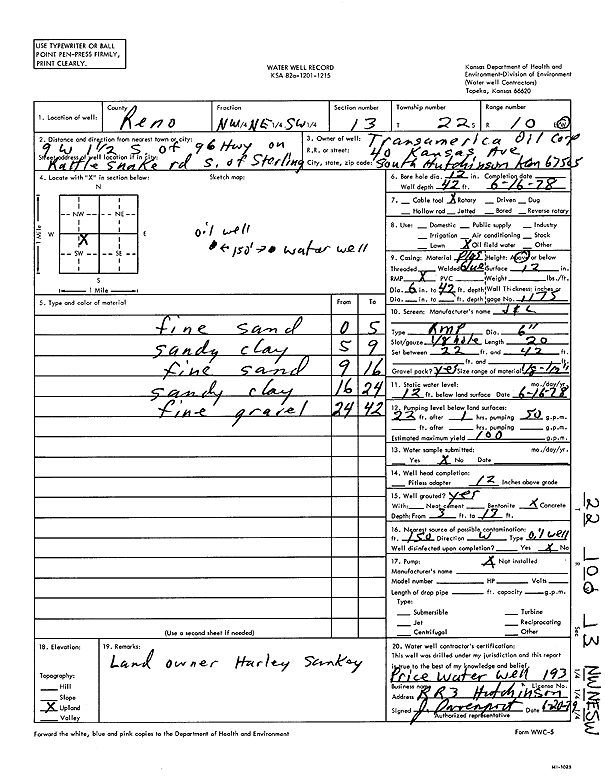 USE TYPEWRITER OR BALL
POINT PEN-PRESS FIRMLY,
PRINT CLEARLY.
WATER WELL RECORD
KSA 82a-1201-1215
Kansas Department of Health and
Environment-Division of Environment
(Water well Contractors)
Topeka, Kansas 66620
1. Location of well: County Reno Fraction NW 1/4 NE 1/4 SW 1/4 Section number 13 Township number T 22 S Range number R 10 E/W
2. Distance and direction from nearest town or city:
9 W 1 1/2 S of 96 Hwy on
Street address of well location if in city:
Rattle Snake rd S. of Sterling
3. Owner of well: Transamerica Oil Corp
R.R. or street: 40 Kansas Ave
City, state, zip code: South Hutchinson Kan 67505
4. Locate with "X" in section below:
Sketch map:
N
NW NE
W X E
SW SE
S
1 Mile
1 Mile
oil well
150' water well
5. Type and color of material From To
fine sand 0 5
sandy clay 5 9
fine sand 9 16
sandy clay 16 24
fine gravel 24 42
(Use a second sheet if needed)
6. Bore hole dia. 12 in. Completion date
Well depth 42 ft. 6-16-78
7. Cable tool X Rotary Driven Dug
Hollow rod Jetted Bored Reverse rotary
8. Use: Domestic Public supply Industry
Irrigation Air conditioning Stock
Lawn X Oil field water Other
9. Casing: Material plas Height: Above or below
Threaded Welded glue Surface 12 in.
RMP X PVC Weight lbs./ft.
Dia. 6 in. to 42 ft. depth Wall Thickness: inches or
Dia. in. to ft. depth gage No. 1175
10. Screen: Manufacturer's name
Type RMP Dia. 6"
Slot/gauze 1/8 hole Length 20
Set between 22 ft. and 42 ft.
ft. and ft.
Gravel pack? yes Size range of material
11. Static water level: mo./day/yr.
12 ft. below land surface Date 6-16-78
12. Pumping level below land surfaces:
22 ft. after 1 hrs. pumping 50 g.p.m.
ft. after hrs. pumping g.p.m.
Estimated maximum yield 100 g.p.m.
13. Water sample submitted: mo./day/yr.
Yes X No Date
14. Well head completion:
Pitless adapter 12 Inches above grade
15. Well grouted? yes
With: Neat cement Bentonite X Concrete
Depth: From 3 ft. to 17 ft.
16. Nearest source of possible contamination:
ft. 150 Direction W Type oil well
Well disinfected upon completion? Yes X No
17. Pump: X Not installed
Manufacturer's name
Model number HP Volts
Length of drop pipe ft. capacity g.p.m.
Type:
Submersible Turbine
Jet Reciprocating
Centrifugal Other
18. Elevation:
Topography:
Hill
Slope
X Upland
Valley
19. Remarks:
Land owner Harley Sankey
20. Water well contractor's certification:
This well was drilled under my jurisdiction and this report
is true to the best of my knowledge and belief.
Price Water Well 193
Business name License No.
Address RR3 Hutchinson
Signed J Davenport Date
Authorized representative
22 10 W 13 NWNESW
T R Sec. 1/4 1/4 1/4
Forward the white, blue and pink copies to the Department of Health and Environment
Form WWC-5